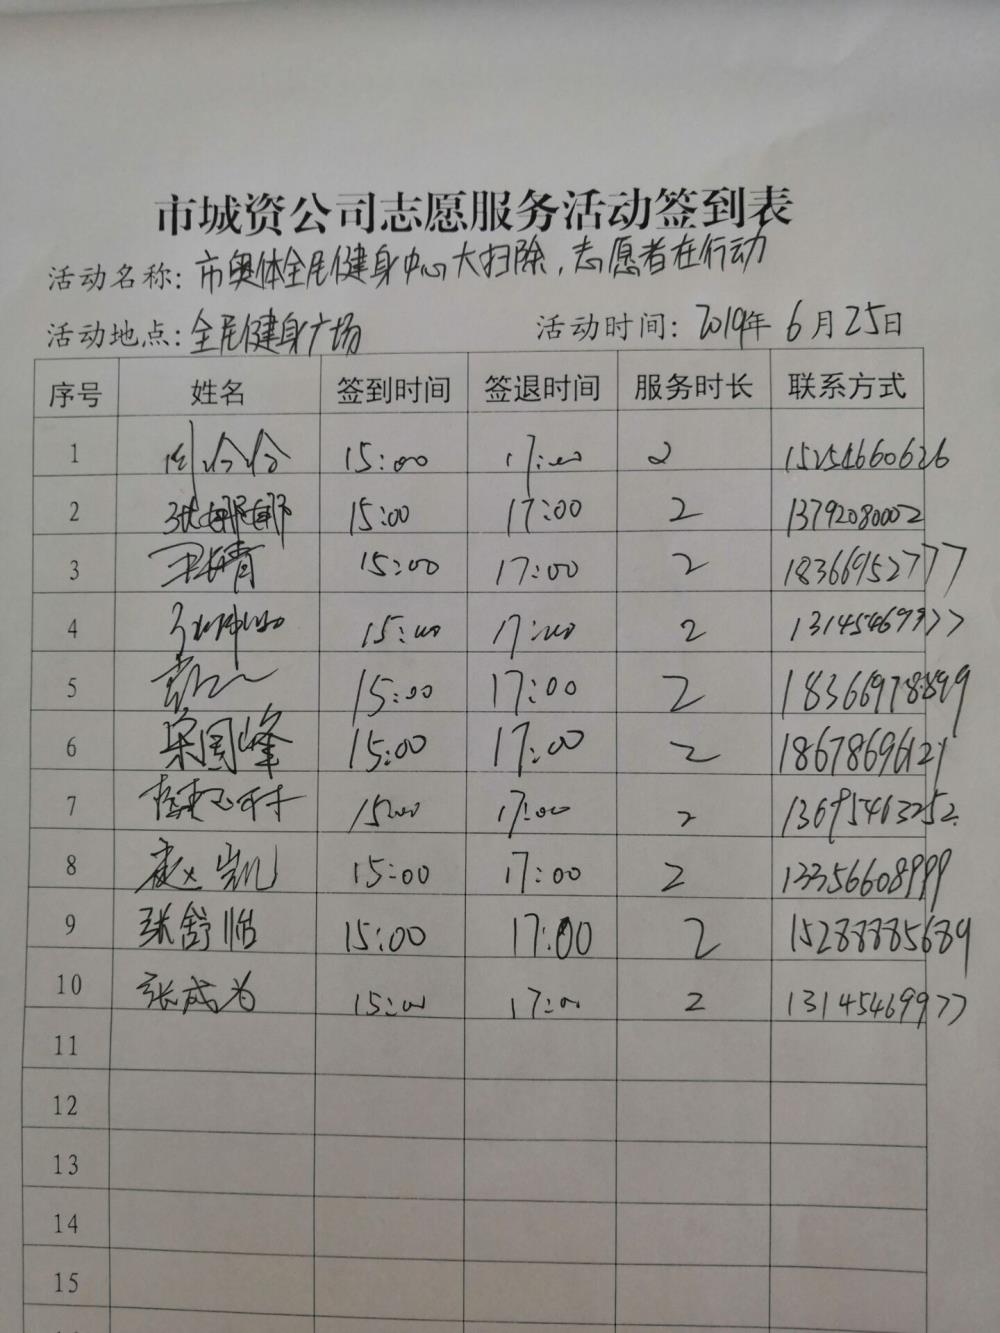 市城资公司志愿服务活动签到表
活动名称：市奥体全民健身中心大扫除，志愿者在行动
活动地点：全民健身广场 活动时间：2019年6月25日
序号 姓名 签到时间 签退时间 服务时长 联系方式
1 15:00 17:00 2 15254660626
2 张娜娜 15:00 17:00 2 13792080002
3 15:00 17:00 2 18366952777
4 15:00 17:00 2 13145469977
5 15:00 17:00 2 18366978899
6 梁国峰 15:00 17:00 2 18678696121
7 15:00 17:00 2 13695463252
8 赵凯 15:00 17:00 2 13356608999
9 张舒怡 15:00 17:00 2 15288885689
10 张成为 15:00 17:00 2 13145469977
11
12
13
14
15